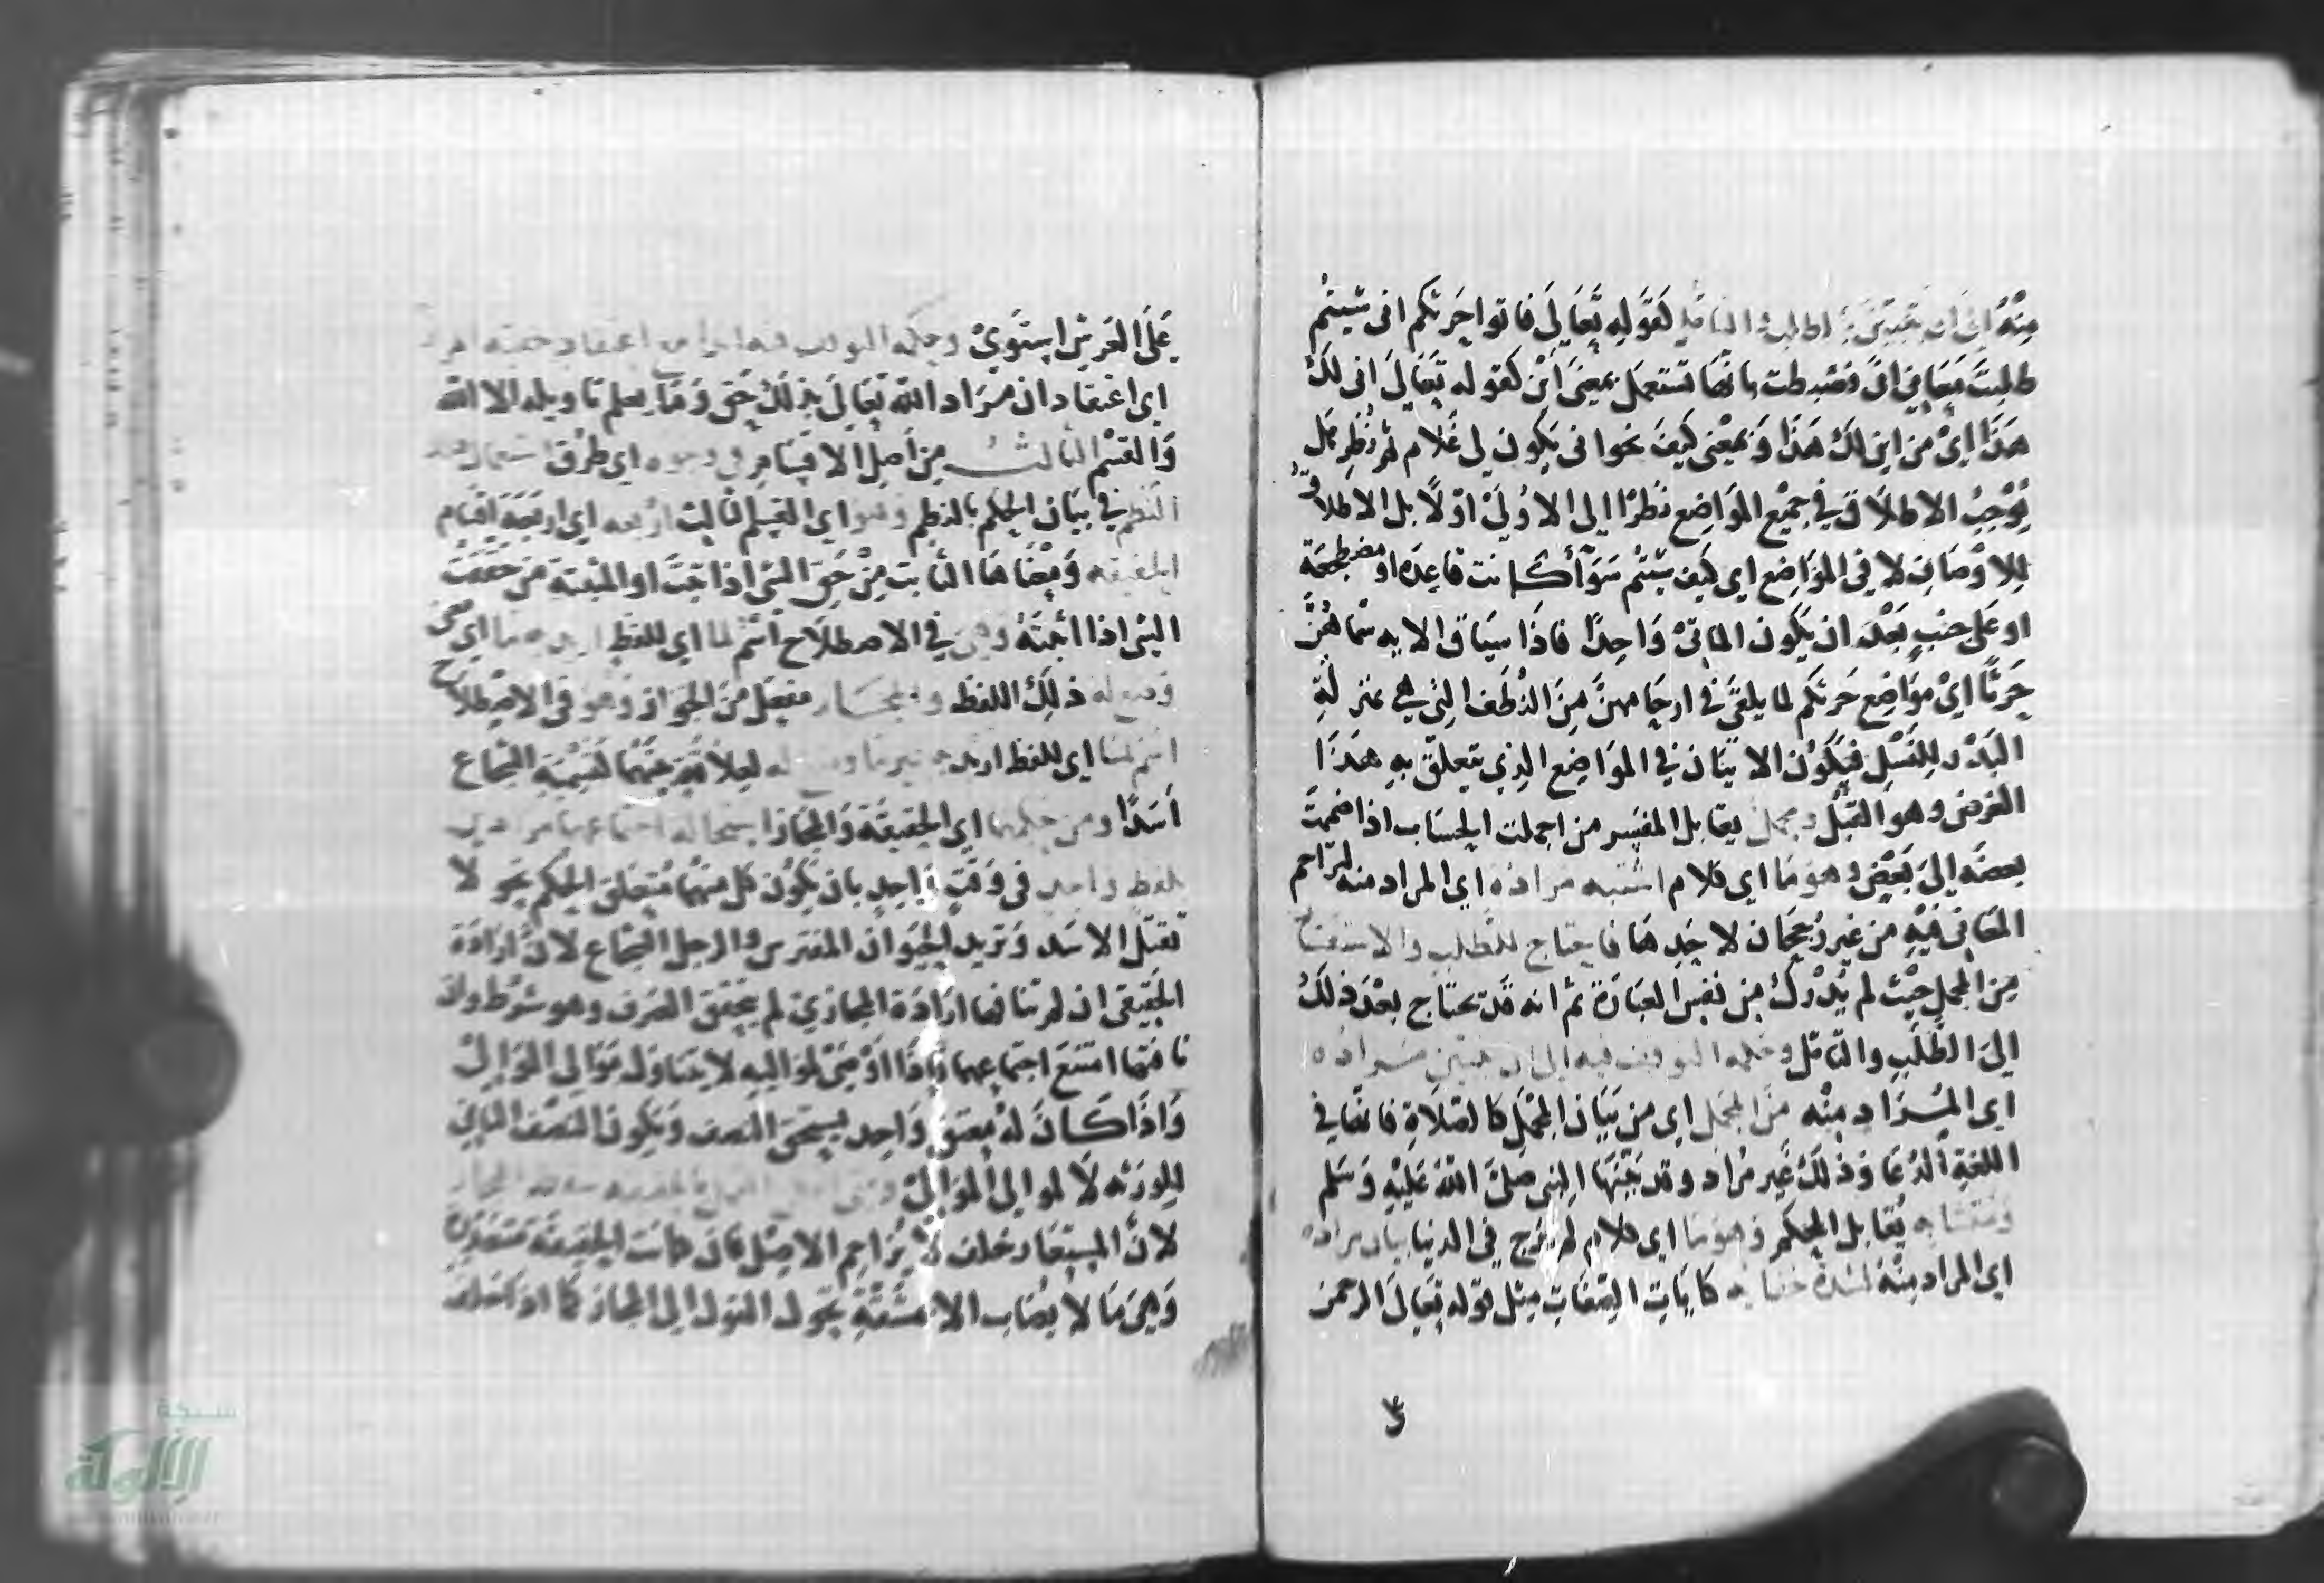 منه الى ان يتبين بالطلب والتامل كقوله تعالى فاتوا حرثكم انى شيتم
طلبت معانى انى فضبطت بانها تستعمل بمعنى اين كقوله تعالى انى لك
هذا اي من اين لك هذا وبمعنى كيف نحو انى يكون لي غلام ثم نظر هل
يوجب الاطلاق في جميع المواضع نظرا الى الاولى اولا بل الاطلاق
للاوصاف لا في المواضع اي كيف شيتم سوآ أكانت قاعدة او مضطجعة
او على جنب بعد ان يكون الماتى واحدا فاذا سياق الايه سماهن
حرثا اي مواضع حرثكم لما يلقى في ارحامهن من النطف التي هي بمنزلة
البذر للنسل فيكون الاتيان في المواضع الذي يتعلق به هذا
الغرض وهو القبل ومجمل يقابل المفسر من اجملت الحساب اذا ضممت
بعضه الى بعض وهو ما اي كلام اشتبه مراده اي المراد منه لتزاحم
المعانى فيه من غير رجحان لاحدها فاحتاج للطلب والاستفسار
من المجمل حيث لم يدرك من نفس العبارة ثم انه قد يحتاج بعد ذلك
الى الطلب والتامل وحكمه التوقف فيه الى ان يتبين مراده
اي المراد منه من المجمل اي من بيان المجمل كالصلاة فانها في
اللغة الدعا وذلك غير مراد وقد بينها النبى صلى الله عليه وسلم
ومتشابه يقابل المحكم وهو ما اي كلام لم يرج في الدنيا بيان مراده
اي المراد منه لشدة خفايه كايات الصفات مثل قوله تعالى الرحمن
على العرش استوى وحكمه التوقف فيه ابدا مع اعتقاد حقية المراد
اي اعتقاد ان مراد الله تعالى بذلك حق وما يعلم تاويله الا الله
والقسم الثالث من اصل الاقسام في وجوه اي طرق استعمال
النظم في بيان الحكم بالنظم وهو اي القسم الثالث اربعه اي اربعة اقسام
الحقيقه ومعناها الثابت من حق الشى اذا ثبت او المثبتة من حققت
الشى اذا اثبته وهى في الاصطلاح اسم لما اي للفظ اريد به ما اي معنى
وضع له ذلك اللفظ والمجاز مفعل من الجواز وهو في الاصطلاح
اسم لما اي للفظ اريد به غير ما وضع له لعلاقة بينهما كتسمية الشجاع
اسدا ومن حكمهما اي الحقيقة والمجاز استحالة اجتماعهما مرادين
بلفظ واحد في وقت واحد بان يكون كل منهما متعلق الحكم نحو لا
تقتل الاسد وتريد الحيوان المفترس والرجل الشجاع لان ارادة
الحقيقى ان لم تنافها ارادة المجازي لم يتحقق الصرف وهو شرط وان
نافتها امتنع اجتماعهما فاذا اوصى لمواليه لا يتناول موالى الموالى
واذا كان له معتق واحد يستحق النصف ويكون النصف الباقى
للورثه لا لموالى الموالى ومتى امكن العمل بالحقيقه سقط المجاز
لان المستعار خلف لا يزاحم الاصل فان كانت الحقيقة متعذرة
وهى ما لا يصاب الا بمشقة تحول القول الى المجاز كما اذا حلف